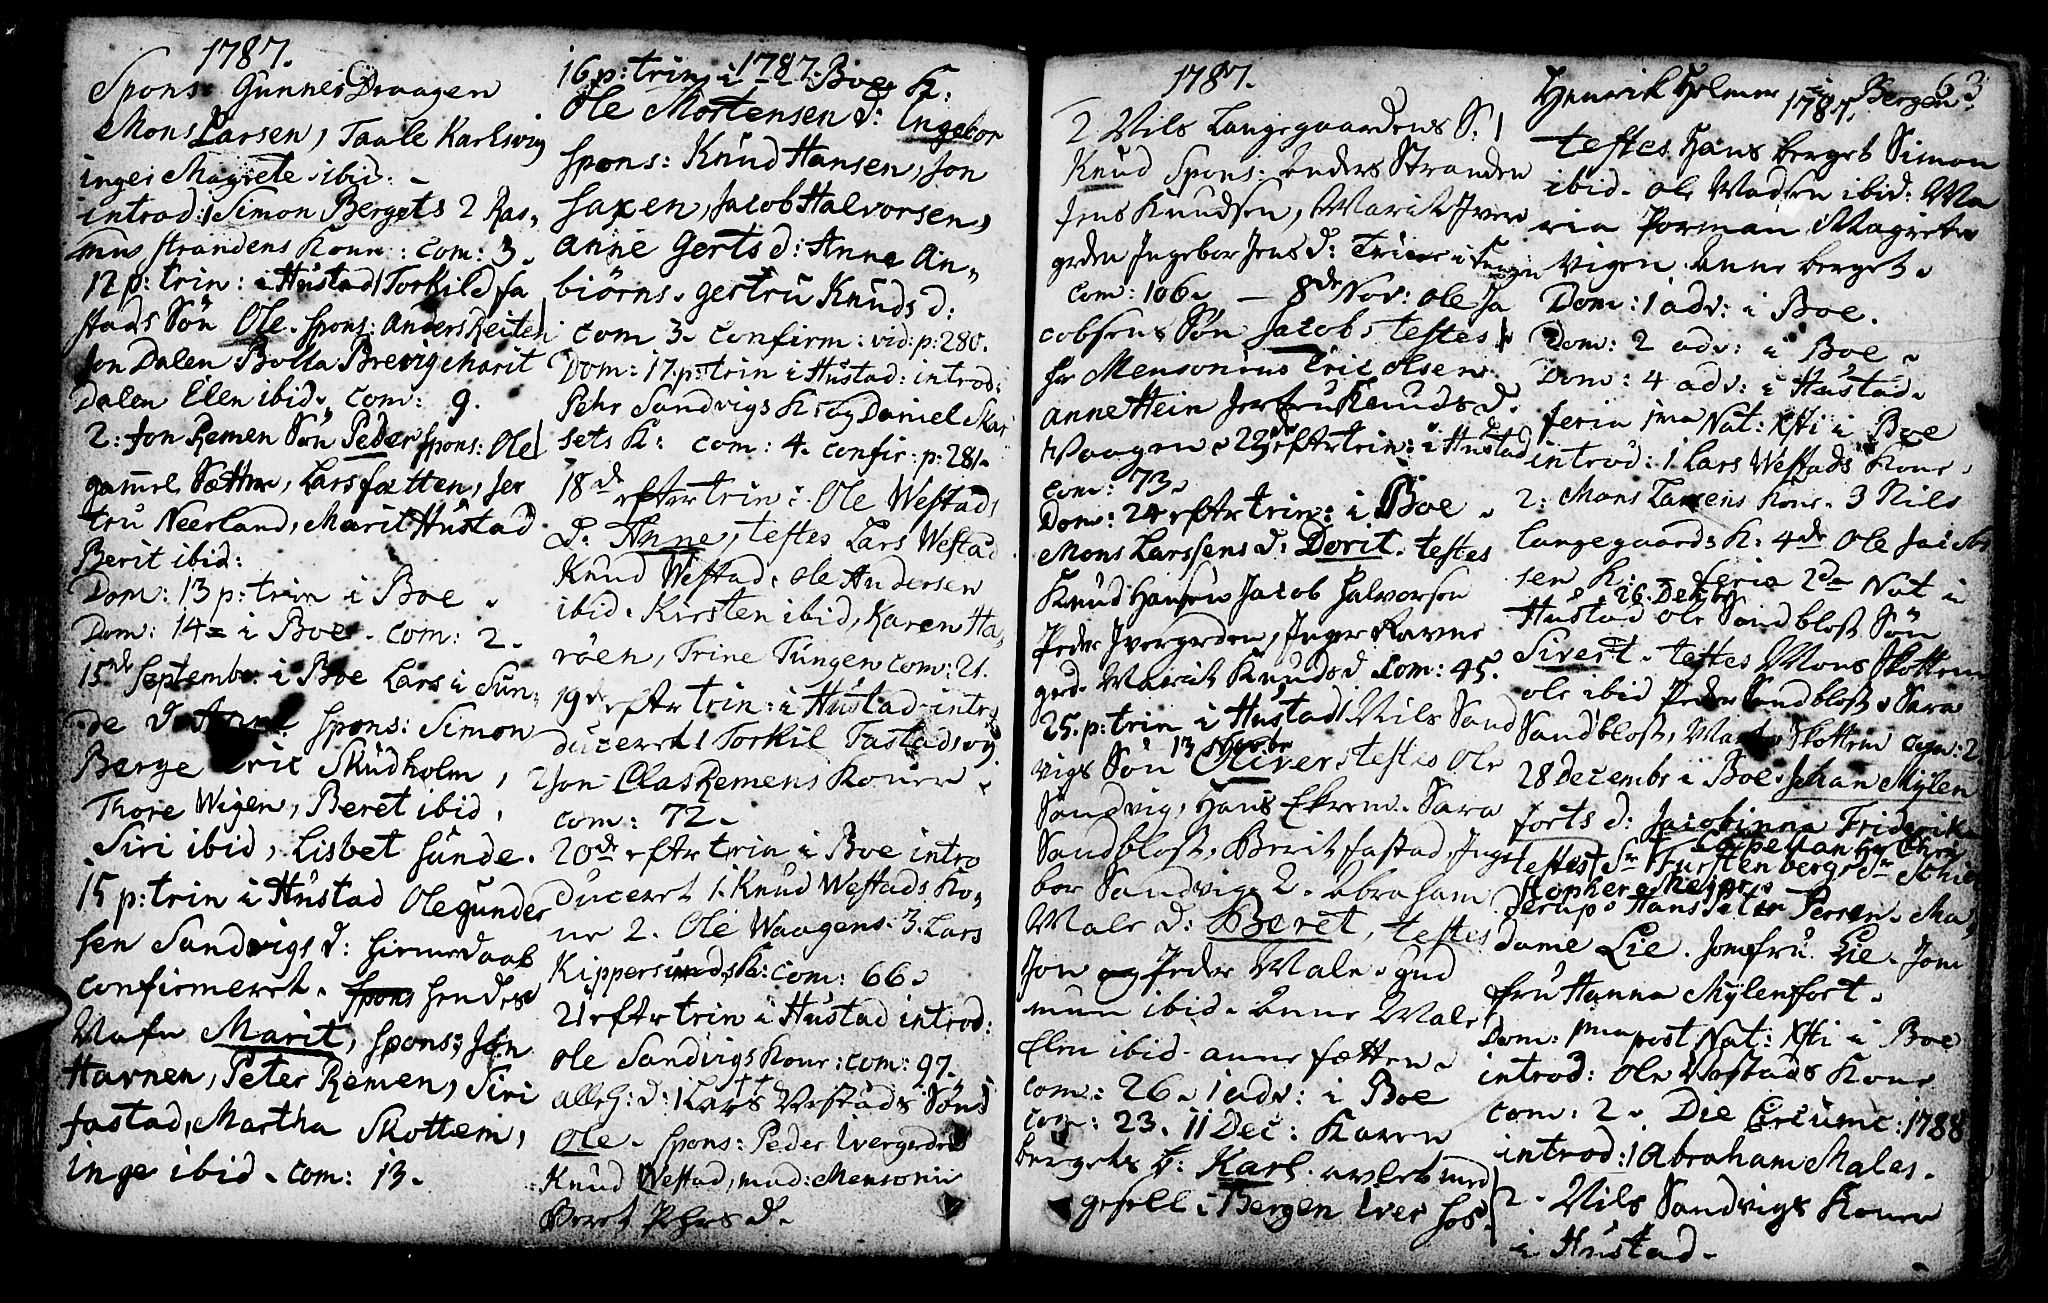 1787.
Spons: Gunner Draagen
Mons Larsen, Taale Karlsvig
inger Magrete ibid. -
introd: 1 Simon Bergets 2 Ras-
mus strandens Kone: com: 3.
12 p: trin: i Hustad 1 Torkild fa
stads Søn Ole. spons: Anders Reiten
Jon Dalen Bolla Brevig Marit
Dalen Elen ibid. com: 9.
2: Jon Remen Søn Peder spons: Ole
gamel Sætter, Lars sætten, Jer
tru Neerland, Marit Hustad
Berit ibid:
Dom: 13 p: trin i Boe.
Dom: 14 = i Boe. com: 2.
15de Septembr: i Boe Lars i Sun-
de d. spons: Simon
Berge Eric Skudholm,
Thore Wigen, Beret ibid,
Siri ibid, Lisbet sunde.
15 p: trin i Hustad Ole gunder
sen Sandvigs d: hiemedaab
confirmeret. hendes
Nafn Marit, spons: Jon
Havnen, Peter Remen, Siri
fastad, Martha Skottem,
inge ibid. com: 13.
1787.
16 p: trin i Boe K:
Ole Mortensen d: Ingebor
spons: Knud Hansen, Jon
saxen, Jacob Halvorsen,
Anne Gerts d: Anne An-
biørns. gertru Knuds d:
com 3. confirm: vid: p: 280.
Dom: 17. p: trin i Hustad: introd:
Pehr Sandvigs K: og Daniel Skar
sets K: com: 4. confir: p: 281.
18de efter trin: Ole Westads
d. Anne, testes Lars Westad
Knud Westad, Ole Andersen
ibid. Kirsten ibid, Karen Ha-
røen, Trine Tungen com: 21.
19de efter trin: i Hustad intro
duceret 1 Torkil Fastads og
2 Jon Clas Remens Koner.
com: 72.
20de efter trin i Boe intro
duceret 1. Knud Westads Ko-
ne 2. Ole Waagens. 3. Lars
Kippersunds K: com: 66.
21 efter trin i Hustad introd:
Ole Sandvigs Kone: com: 97.
alleh: d: 1 Lars Westads Søns
Ole. spons: Peder Ivergerdet
Knud Westad, mad: Mensonii
Beret Pehrs d.
1787.
2 Nils Langegaardens S.
Knud Spons: Anders Stranden
Jens Knudsen, Marit Iver
gerden Ingebor Jens d: Trine i Tungen
com: 106. - 8de Nov: Ole Ja
cobsens Søn Jacob, testes
Hr Mensonius Eric Olsen
Anne Hein Jertru Knuds d.
Waagen. 22de efter trin: i Hustad
com: 73.
Dom: 24 efter trin: i Boe.
Mons Larssens d: Dorit. testes
Knud Hansen Jacob Halvorsen
Peder Ivergerden, Inger Karne
grd. Marit Knuds d com: 45.
25. p: trin i Hustad 1 Nils Sand
vigs Søn Oliver testes Ole
13 Novbr
Sandvig, Hans Ekrem. Sara
Sandblost, Berit fastad, Inge
bor Sandvig. 2. Abraham
Male d: Beret, testes
Jon og Peder Male. gud
mun ibid. Anne Male
Elen ibid. anne sætten.
com: 26. 1 adv: i Boe
com: 23. 11 Dec: Karen
bergets b: Karl. avlet med
gesell i Bergen Iver hos
63
Henrik Helmer i Bergen
1787.
testes Hans berget Simon
ibid. Ole Madsen ibid: Ma
ria Porman Magrete
Vigen. Anne berget.
Dom: 1 adv: i Boe.
Dom: 2 adv: i Boe.
Dom: 4 adv: i Hustad.
feria 1ma Nat: Xsti i Boe
introd: 1 Lars Westads Kone,
2: Mons Larsens Kone. 3 Nils
Langegaards K: 4de Ole Jacob
sen K: - feria 2da Nat i
26. Decbr
Hustad Ole Sandblost Søn
Sivert. testes Mons Skottem
Ole ibid Peder Sandblost. Sara
Sandblost, Skottem com: 2
28 Decembr i Boe. Johan Mylen
forts d: Jacobinna Friderika
testes Sr Furstenberg
Capellan Hr Chri
stopher Meier.
Hans Peter Persen. Ma-
dame Lie. Jomfru Lie. Jom
fru Hanna Mylenfort.
Dom: 1ma post Nat: Xsti i Boe
introd: Ole Westads Kone
com: 2. Die Circumc: 1788
introd: 1 Abraham Males.
2. Nils Sandvigs Koner
i Hustad.